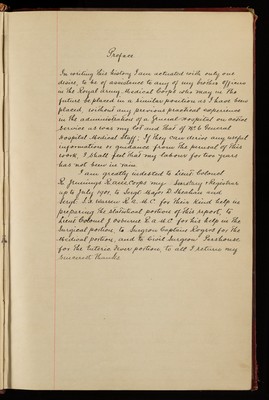 Preface
In writing this history I am actuated with only one
desire, to be of assistance to any of my brother officers
in the Royal Army Medical Corps who may in the
future be placed in a similar position as I have been
placed, without any previous practical experience
in the administration of a General Hospital on active
service as was my lot and that of No 6 General
Hospital Medical Staff. If they can derive any useful
information or guidance from the perusal of this
book, I shall feel that my labours for two years
has not been in vain.
I am greatly indebted to Lieut Colonel
R. Jennings R.A.M. Corps my Sanitary & Registrar
up to July 1901, to Sergt Major D. and
Sergt J. A. Warren R.A.M.C. for their kind help in
preparing the statistical portion of this report, to
Lieut Colonel J. Osburne R.A.M.C for his help in the
Surgical portion, to Surgeon Captain Rogers for the
Medical portion, and to Civil Surgeon Pershouse,
for the Enteric Fever portion, to all I return my
sincerest thanks.